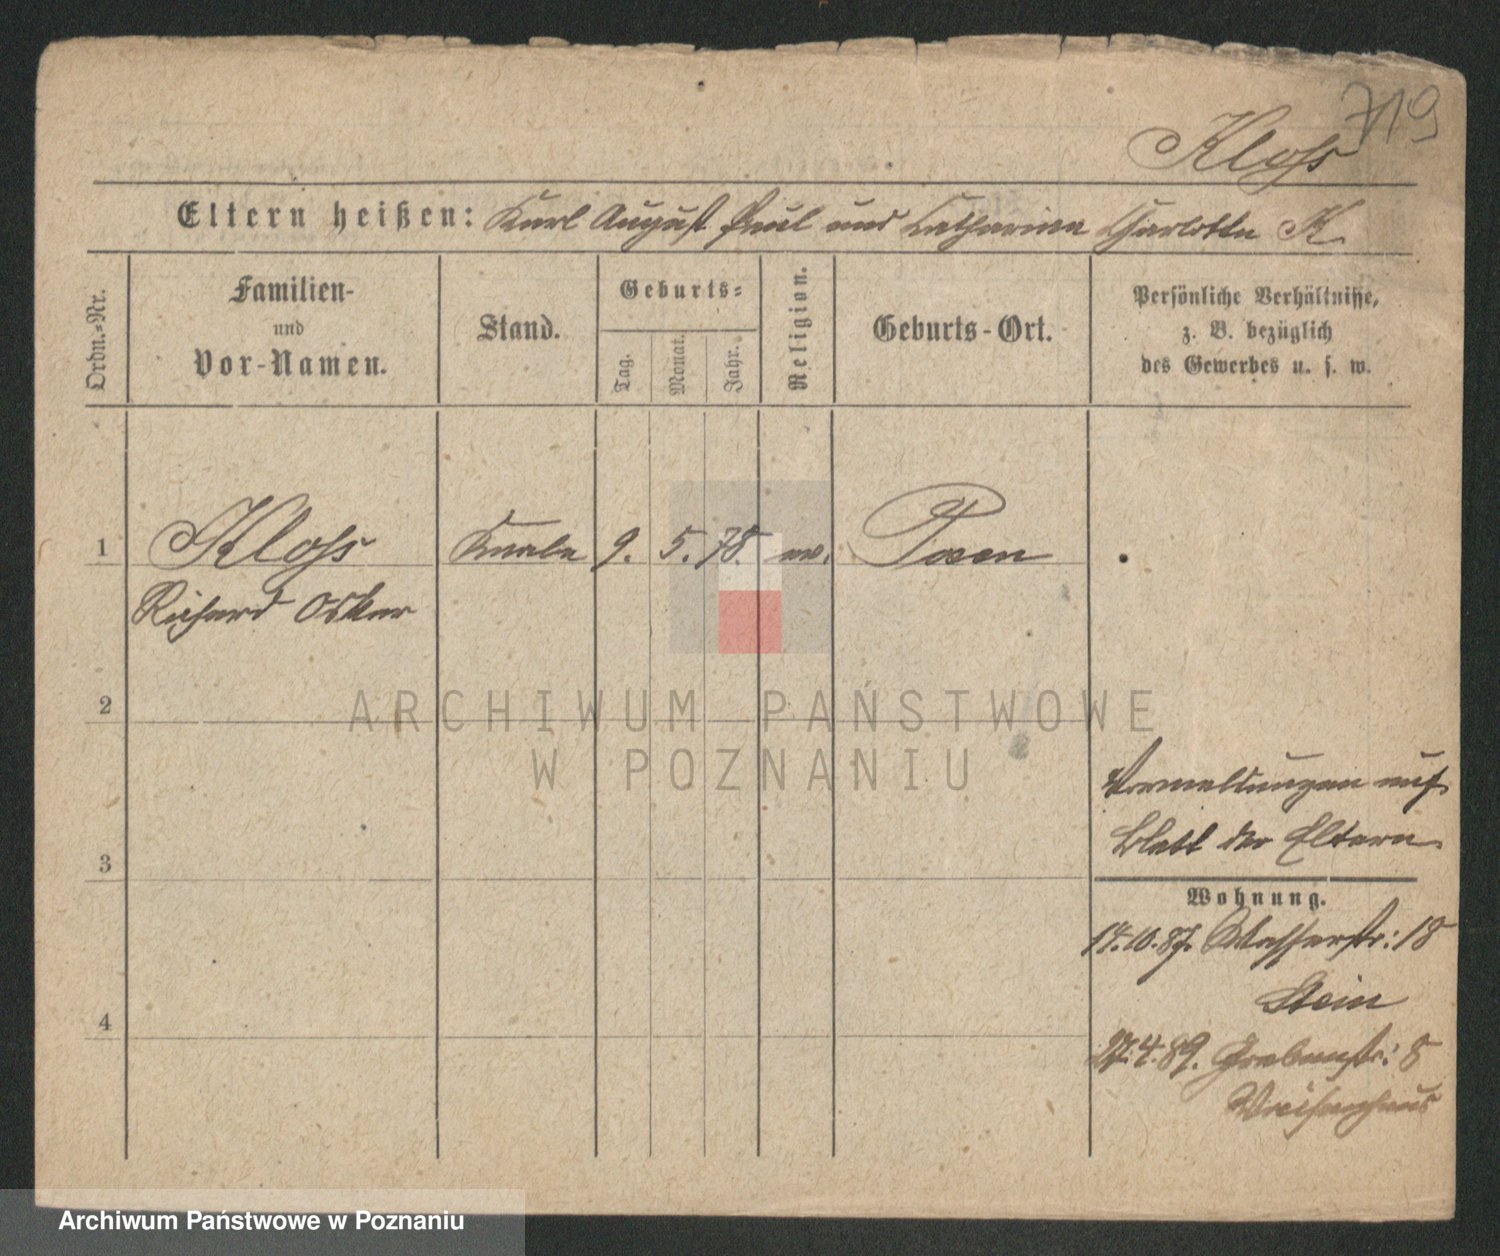 719
Kloss
Eltern heißen: Karl August Paul und Catharina Charlotte K.
Ordn.-Nr.
Familien-
und
Vor-Namen.
Stand.
Geburts-
Tag.
Monat.
Jahr.
Religion.
Geburts-Ort.
Persönliche Verhältnisse,
z. B. bezüglich
des Gewerbes u. s. w.
1 Kloss Knabe 9. 5. 78. ev. Posen
Richard Oskar
2
ARCHIWUM PAŃSTWOWE
W POZNANIU
Vormeldungen auf
Blatt der Eltern
3
Wohnung.
14.10.87. Wasserstr: 18
Stein
4
27.4.89. Grabenstr: 8
Waisenhaus
Archiwum Państwowe w Poznaniu